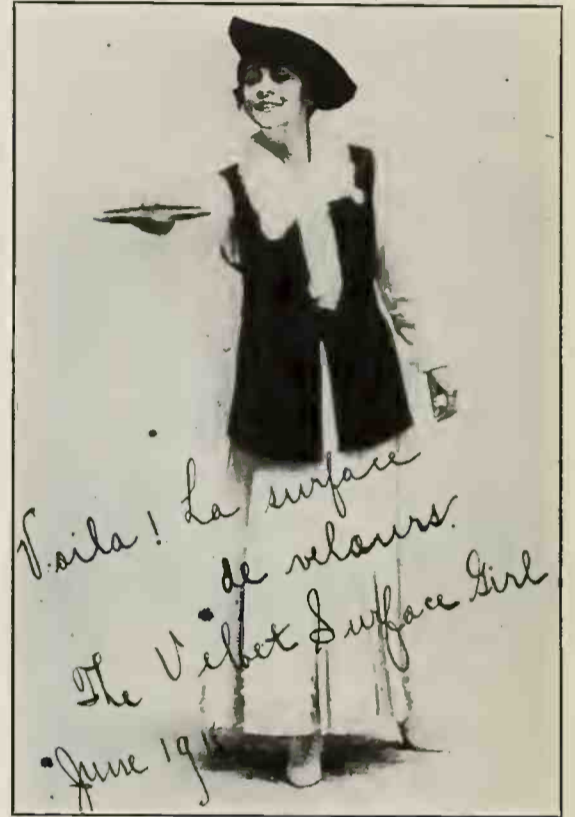 Voila! La surface
de velours.
The Velvet Surface Girl
June 191